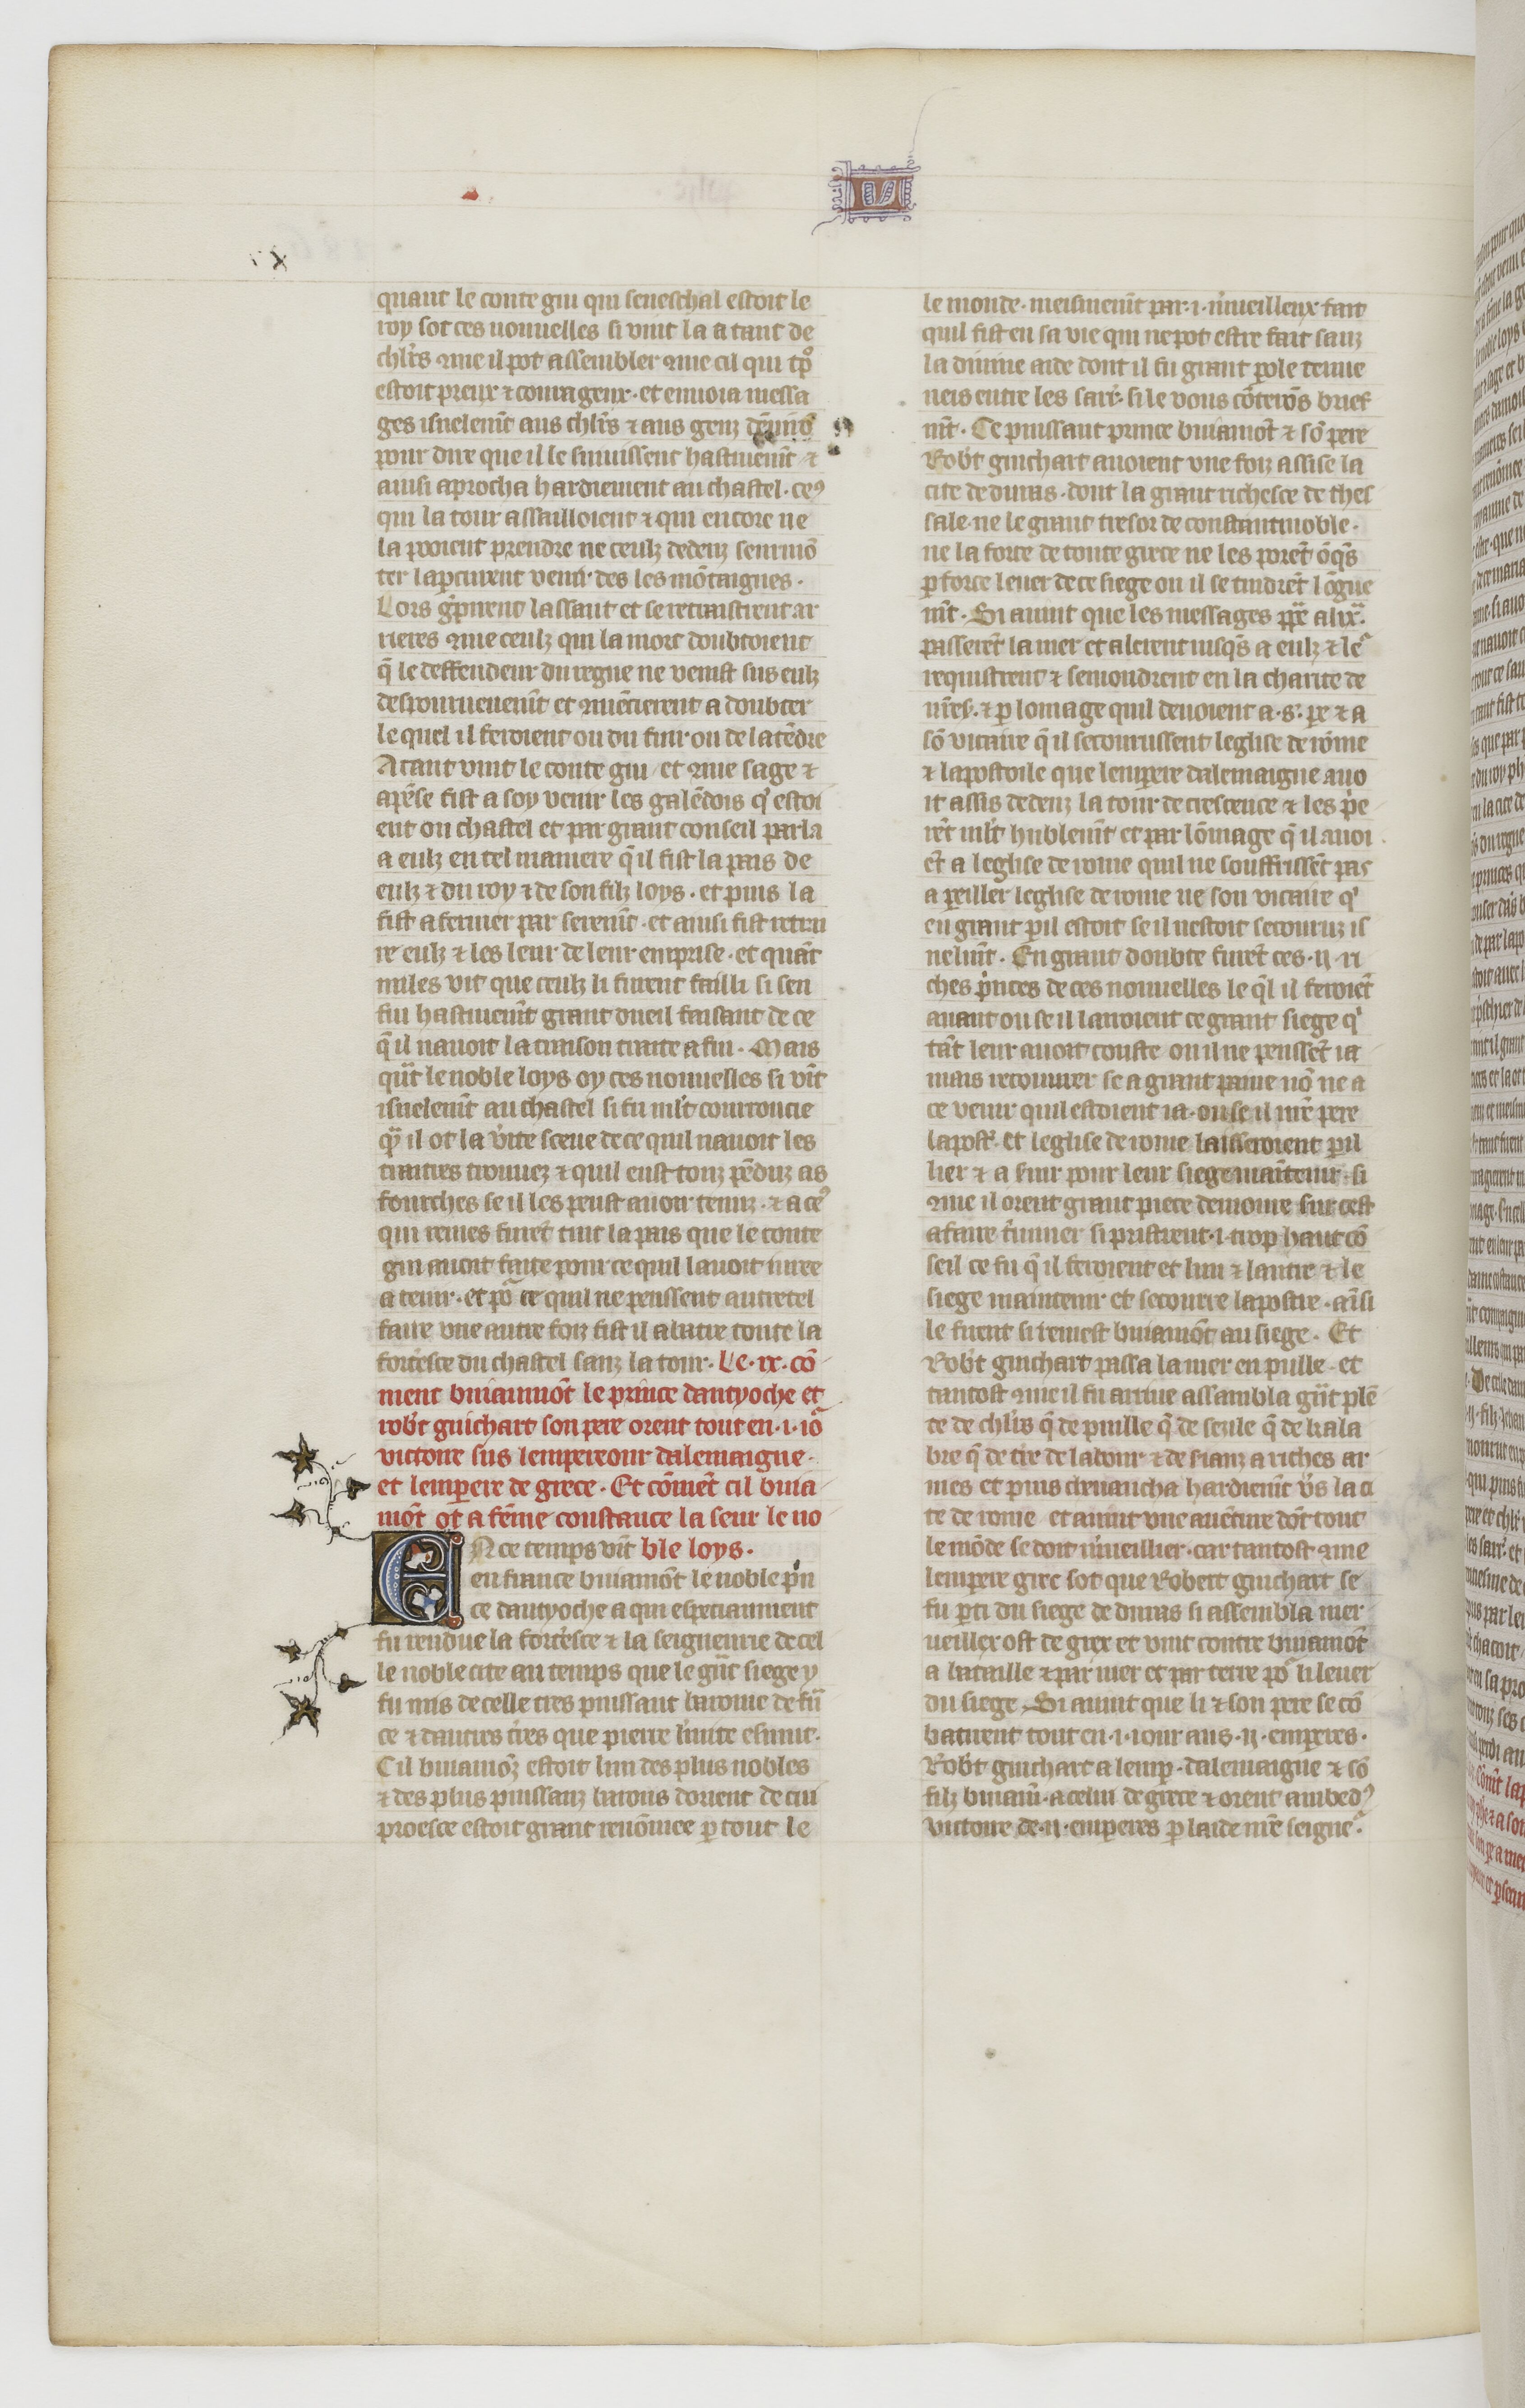 L
quant le conte gui qui seneschal estoit le
roy sot ces nouuelles si vint la a tant de
chlrs ꝯme il pot assembler ꝯme cil qui tp̃
estoit preux ⁊ courageux. et enuoia messa
ges isnelem̃t aus chlrs ⁊ aus genz
pour dire que il le suiuissent hastiuem̃t ⁊
ainsi aprocha hardiement au chastel. ceꝰ
qui la tour assailloient ⁊ qui encore ne
la pooient prendre ne ceulz dedenz seurmõ
ter laꝑcurent venir des les mõtaignes.
Lors g̾pirent lassaut et se retraistrent ar
rieres ꝯme ceulz qui la mort doubtoient
q̃ le deffendeur du regne ne venist sus eulz
despourueuem̃t et ꝯmẽcierent a doubter
le quel il feroient ou du fuir ou de latẽdre
Atant vint le conte gui et ꝯme sage ⁊
apẽse fist a soy venir les galẽdois q̾ estoi
ent ou chastel et par grant conseil parla
a eulz en tel maniere q̃ il fist la pais de
eulz ⁊ du roy ⁊ de son filz loys. et puis la
fist afermer par serem̃t. et ainsi fist retrai
re eulz ⁊ les leur de leur emprise. et quãt
miles vit que ceulz li furent failli si sen
fui hastiuem̃t grant dueil faisant de ce
q̃ il nauoit la traison traite a fin. Mais
qñt le noble loys oy ces nouuelles si vĩt
isnelem̃t au chastel si fu ml't courroucie
q̃r il ot la v̾ite sceue de ce quil nauoit les
traitres trouuez ⁊ quil eust touz pẽduz as
fourches se il les peust auoir tenuz. ⁊ a ceꝰ
qui remes furẽt tint la pais que le conte
gui auoit faite pour ce quil lauoit iuree
a tenir. et po̾ ce quil ne peussent autretel
faire vne autre foiz fist il abatre toute la
forteresce du chastel sanz la tour. Le.ix. cõ
ment buiaumõt le prince dantyoche et
rob't guichart son pere orent tout en.i. io̾
victoire sus lempereour dalemaigne.
et lempere de grece. Et cõmẽt cil buia
mõt ot a fẽme constance la seur le no
ble loys.
EN ce temps vĩt
en france buiamõt le noble p̾n
ce dantyoche a qui especiaument
fu rendue la forteresce ⁊ la seigneurie de cel
le noble cite au temps que le gñt siege y
fu mis de celle tres puissant baronie de frã
ce ⁊ dautres t̾res que pierre l'mite esmut.
Cil buiamõz estoit lun des plus nobles
⁊ des plus puissanz barons dorient de cui
proesce estoit grant renõmee ꝑ tout le
le monde. meismem̃t par.i. m̾ueilleux fait
quil fist en sa vie qui ne pot estre fait sanz
la diuine aide dont il fu grant ꝑole tenue
neis entre les sarr̾. si le vous cõterõs brief
m̃t. Ce puissant prince buiamõt ⁊ sõ pere
Rob't guichart auoient vne foiz assise la
cite de duras. dont la grant richesce de thes
sale. ne le grant tresor de constantinoble.
ne la force de toute grece ne les porẽt õq̃s
ꝑ force leuer de ce siege ou il se tindrẽt lõgue
m̃t. Si auint que les messages pp̃e alix̃.
passerẽt la mer et alerent iusq̃s a eulz ⁊ le̾
requistrent ⁊ semondrent en la charite de
nr̃es. ⁊ ꝑ lomage quil deuoient a.s̾. pe ⁊ a
sõ vicaire q̃ il secourussent leglise de rõme
⁊ lapostoile que lempere dalemaigne auo
it assis dedenz la tour de crescence ⁊ les p̾e
rẽt ml't hũblem̃t et par lõmage q̃ il auoi
ẽt a leglise de rome quil ne souffrissẽt pas
a ꝑeiller leglise de rome ne son vicaire q̾
en grant ꝑil estoit se il nestoit secouruz is
nelm̃t. En grant doubte furẽt ces.ii. ri
ches p̾nces de ces nouuelles le q̃l il feroiẽt
auant ou se il lairoient ce grant siege q̾
tãt leur auoit couste ou il ne peussẽt ia
mais recouurer se a grant paine nõ ne a
ce venir quil estoient ia. ou se il nr̃e pere
lapost̾. et leglise de rome laisseroient ꝑil
lier ⁊ a finir pour leur siege maĩtenir. si
ꝯme il orent grant piece demoure sur cest
afaire t̾miner si pristrent.i. trop haut cõ
seil ce fu q̃ il feroient et lun ⁊ lautre ⁊ le
siege maintenir et secourre lapostre. aĩsi
le firent si remest buiamõt au siege. Et
Rob't guichart passa la mer en puille. et
tantost ꝯme il fu arriue assambla gñt plẽ
te de chlrs q̃ de puille q̃ de sezile q̃ de kala
bre q̃ de t̾re de labour ⁊ de frans a riches ar
mes et puis cheuaucha hardiem̃t v̾s la ci
te de rome et auint vne auẽture dõt tout
le mõde se doit m̾ueillier. car tantost ꝯme
lempere grec sot que Robert guichart se
fu ꝑti du siege de duras si assembla mer
ueillex ost de grex et vint contre buiamõt
a bataille ⁊ par mer et par terre po̾ li leuer
du siege. Si auint que li ⁊ son pere se cõ
batirent tout en.i. iour aus.ii. emperes.
Rob't guichart a lemp̾. dalemaigne ⁊ sõ
filz buiam̃. a celui de grece ⁊ orent ambedꝰ
victoire de.ii. emperes ꝑ laide nr̃e seigne̾.